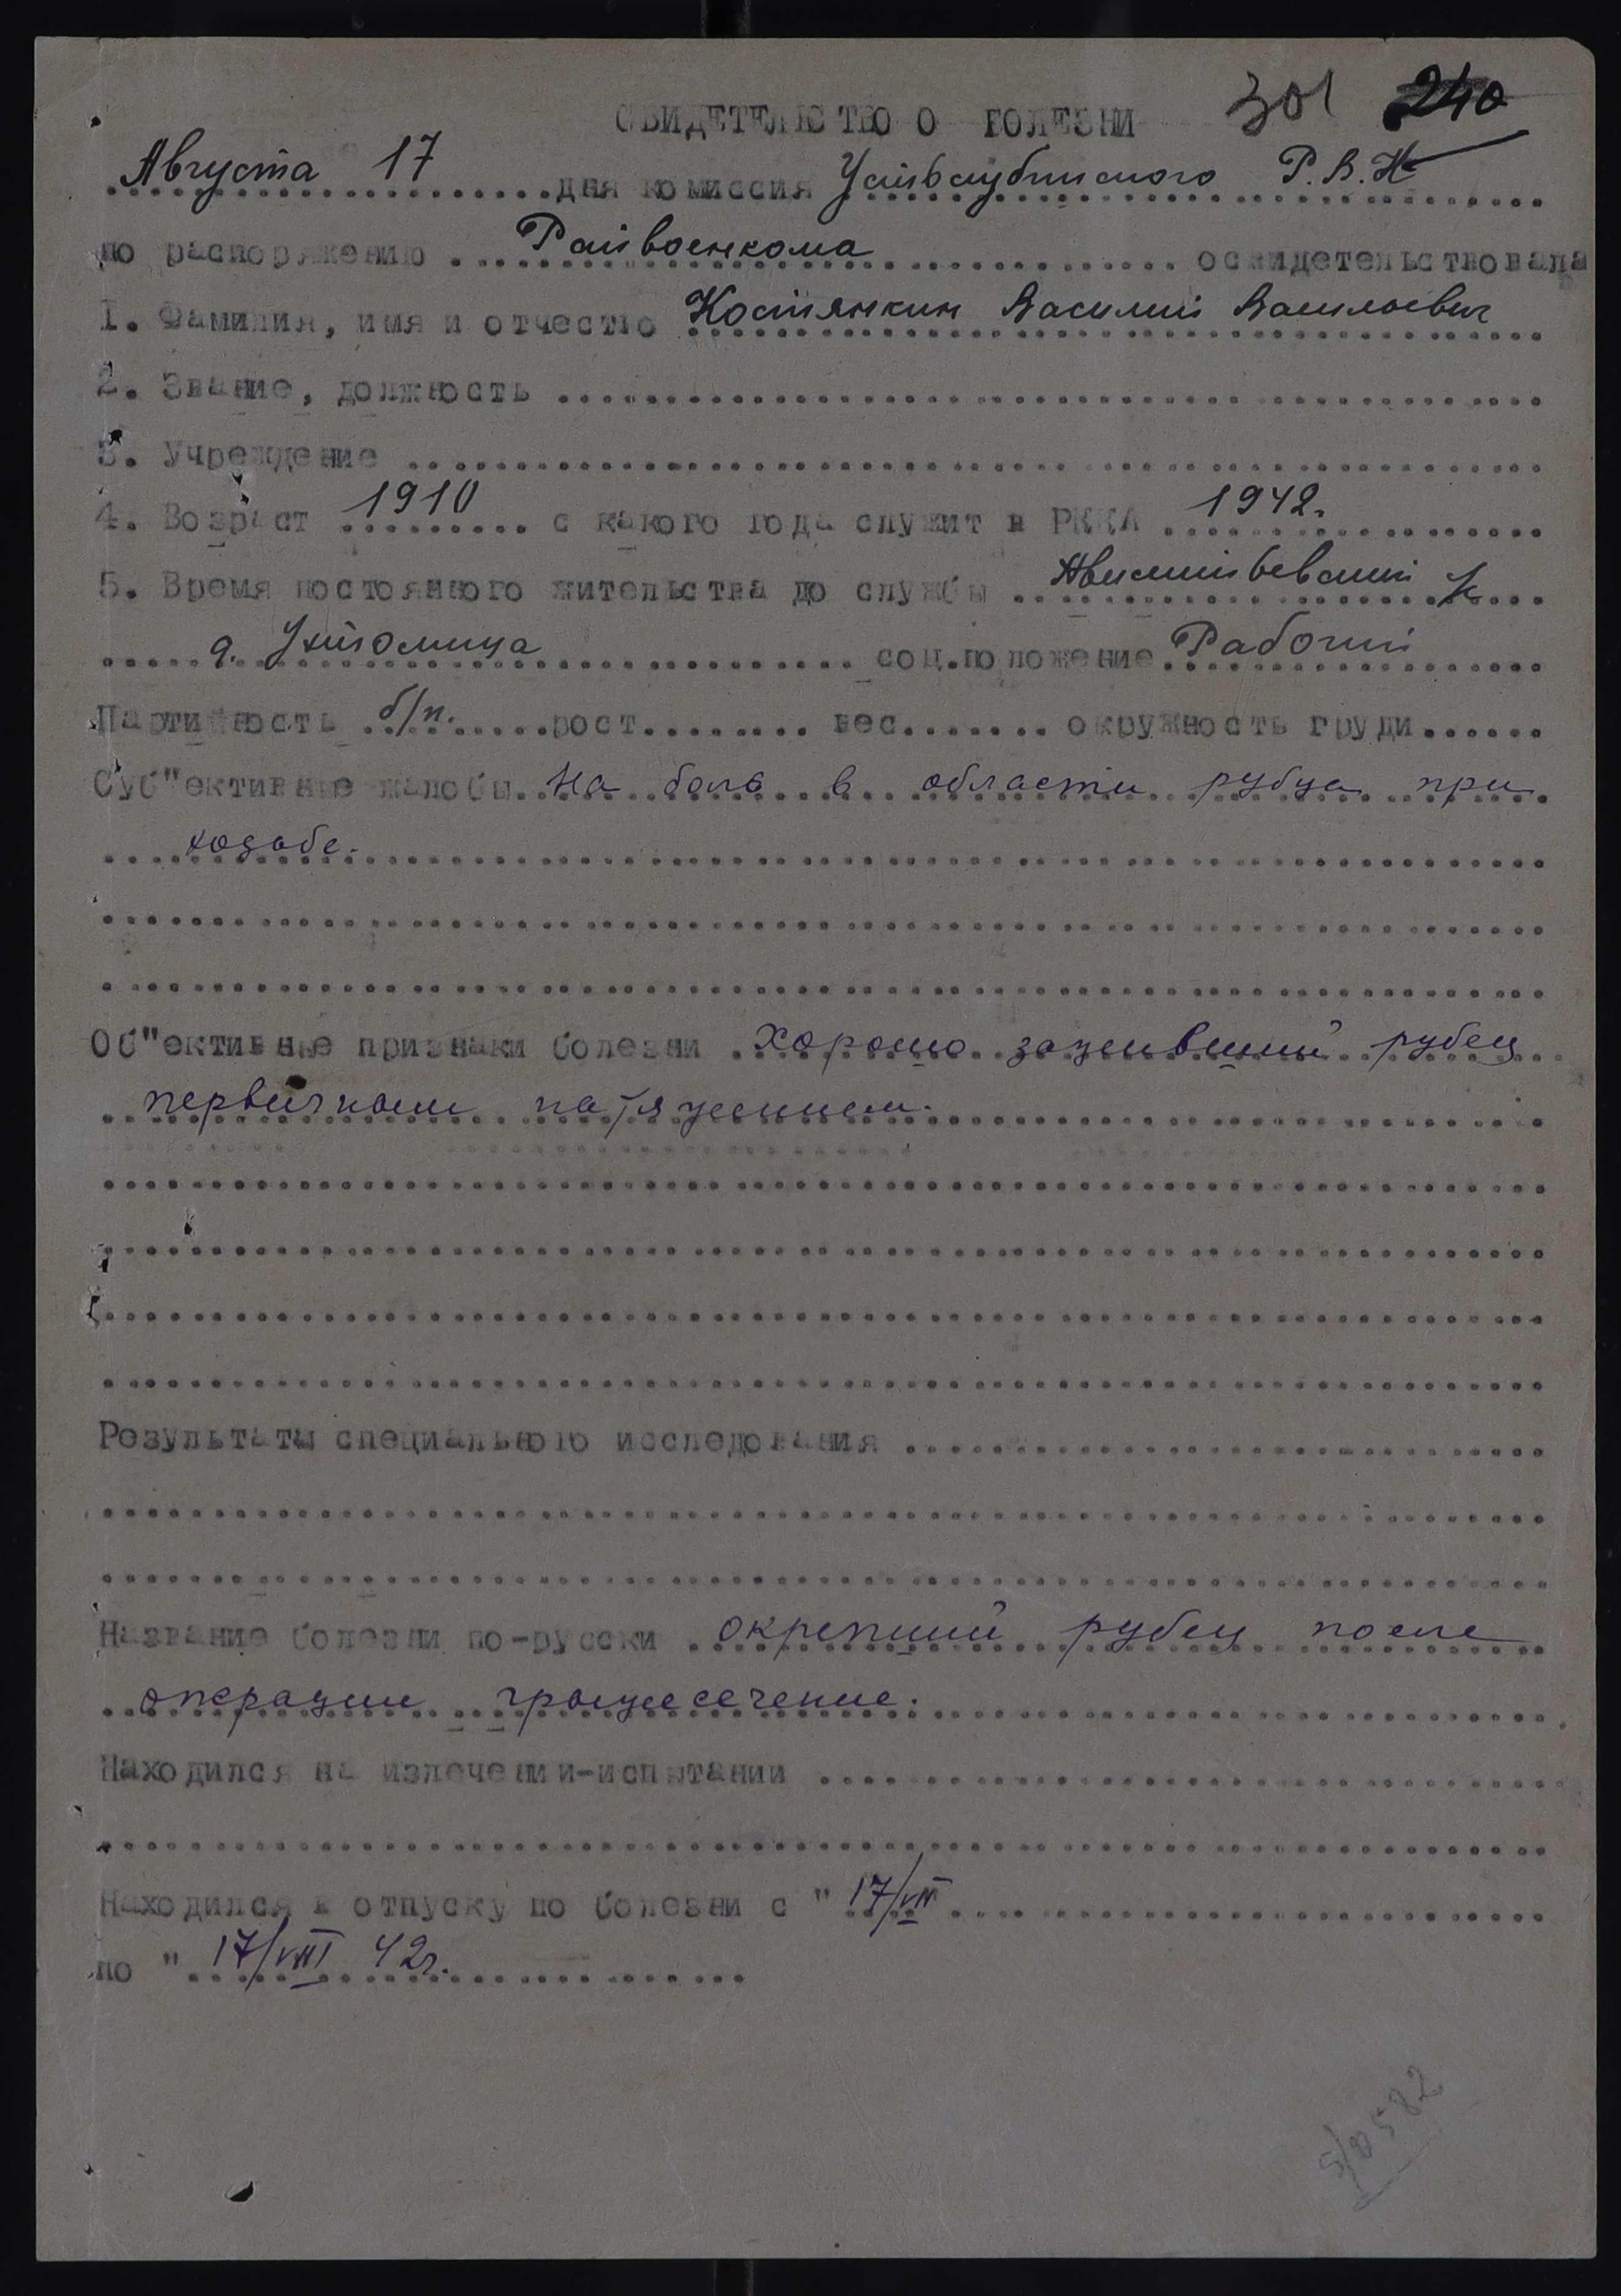 301 240
СВИДЕТЕЛЬСТВО О БОЛЕЗНИ
Августа 17 дня комиссия Усть-Кубинского Р.В.К
по распоряжению Райвоенкома освидетельствовала
1. Фамилия, имя и отчество Костянкин Василий Васильевич
2. Звание, должность
3. Учреждение
4. Возраст 1910 с какого года служит в РККА 1942.
5. Время постоянного жительства до службы
д. соц.положение Рабочий
Партийность б/п. рост вес окружность груди
Суб"ективные жалобы На боль в области рубца при
ходьбе.
Об"ективные признаки болезни Хорошо заживший рубец
первичным натяжением.
Результаты специального исследования
Название болезни по-русски окрепший рубец после
операции грыжесечение.
Находился на излечении-испытании
Находился в отпуску по болезни с " 17/VII
по " 17/VIII 42г.